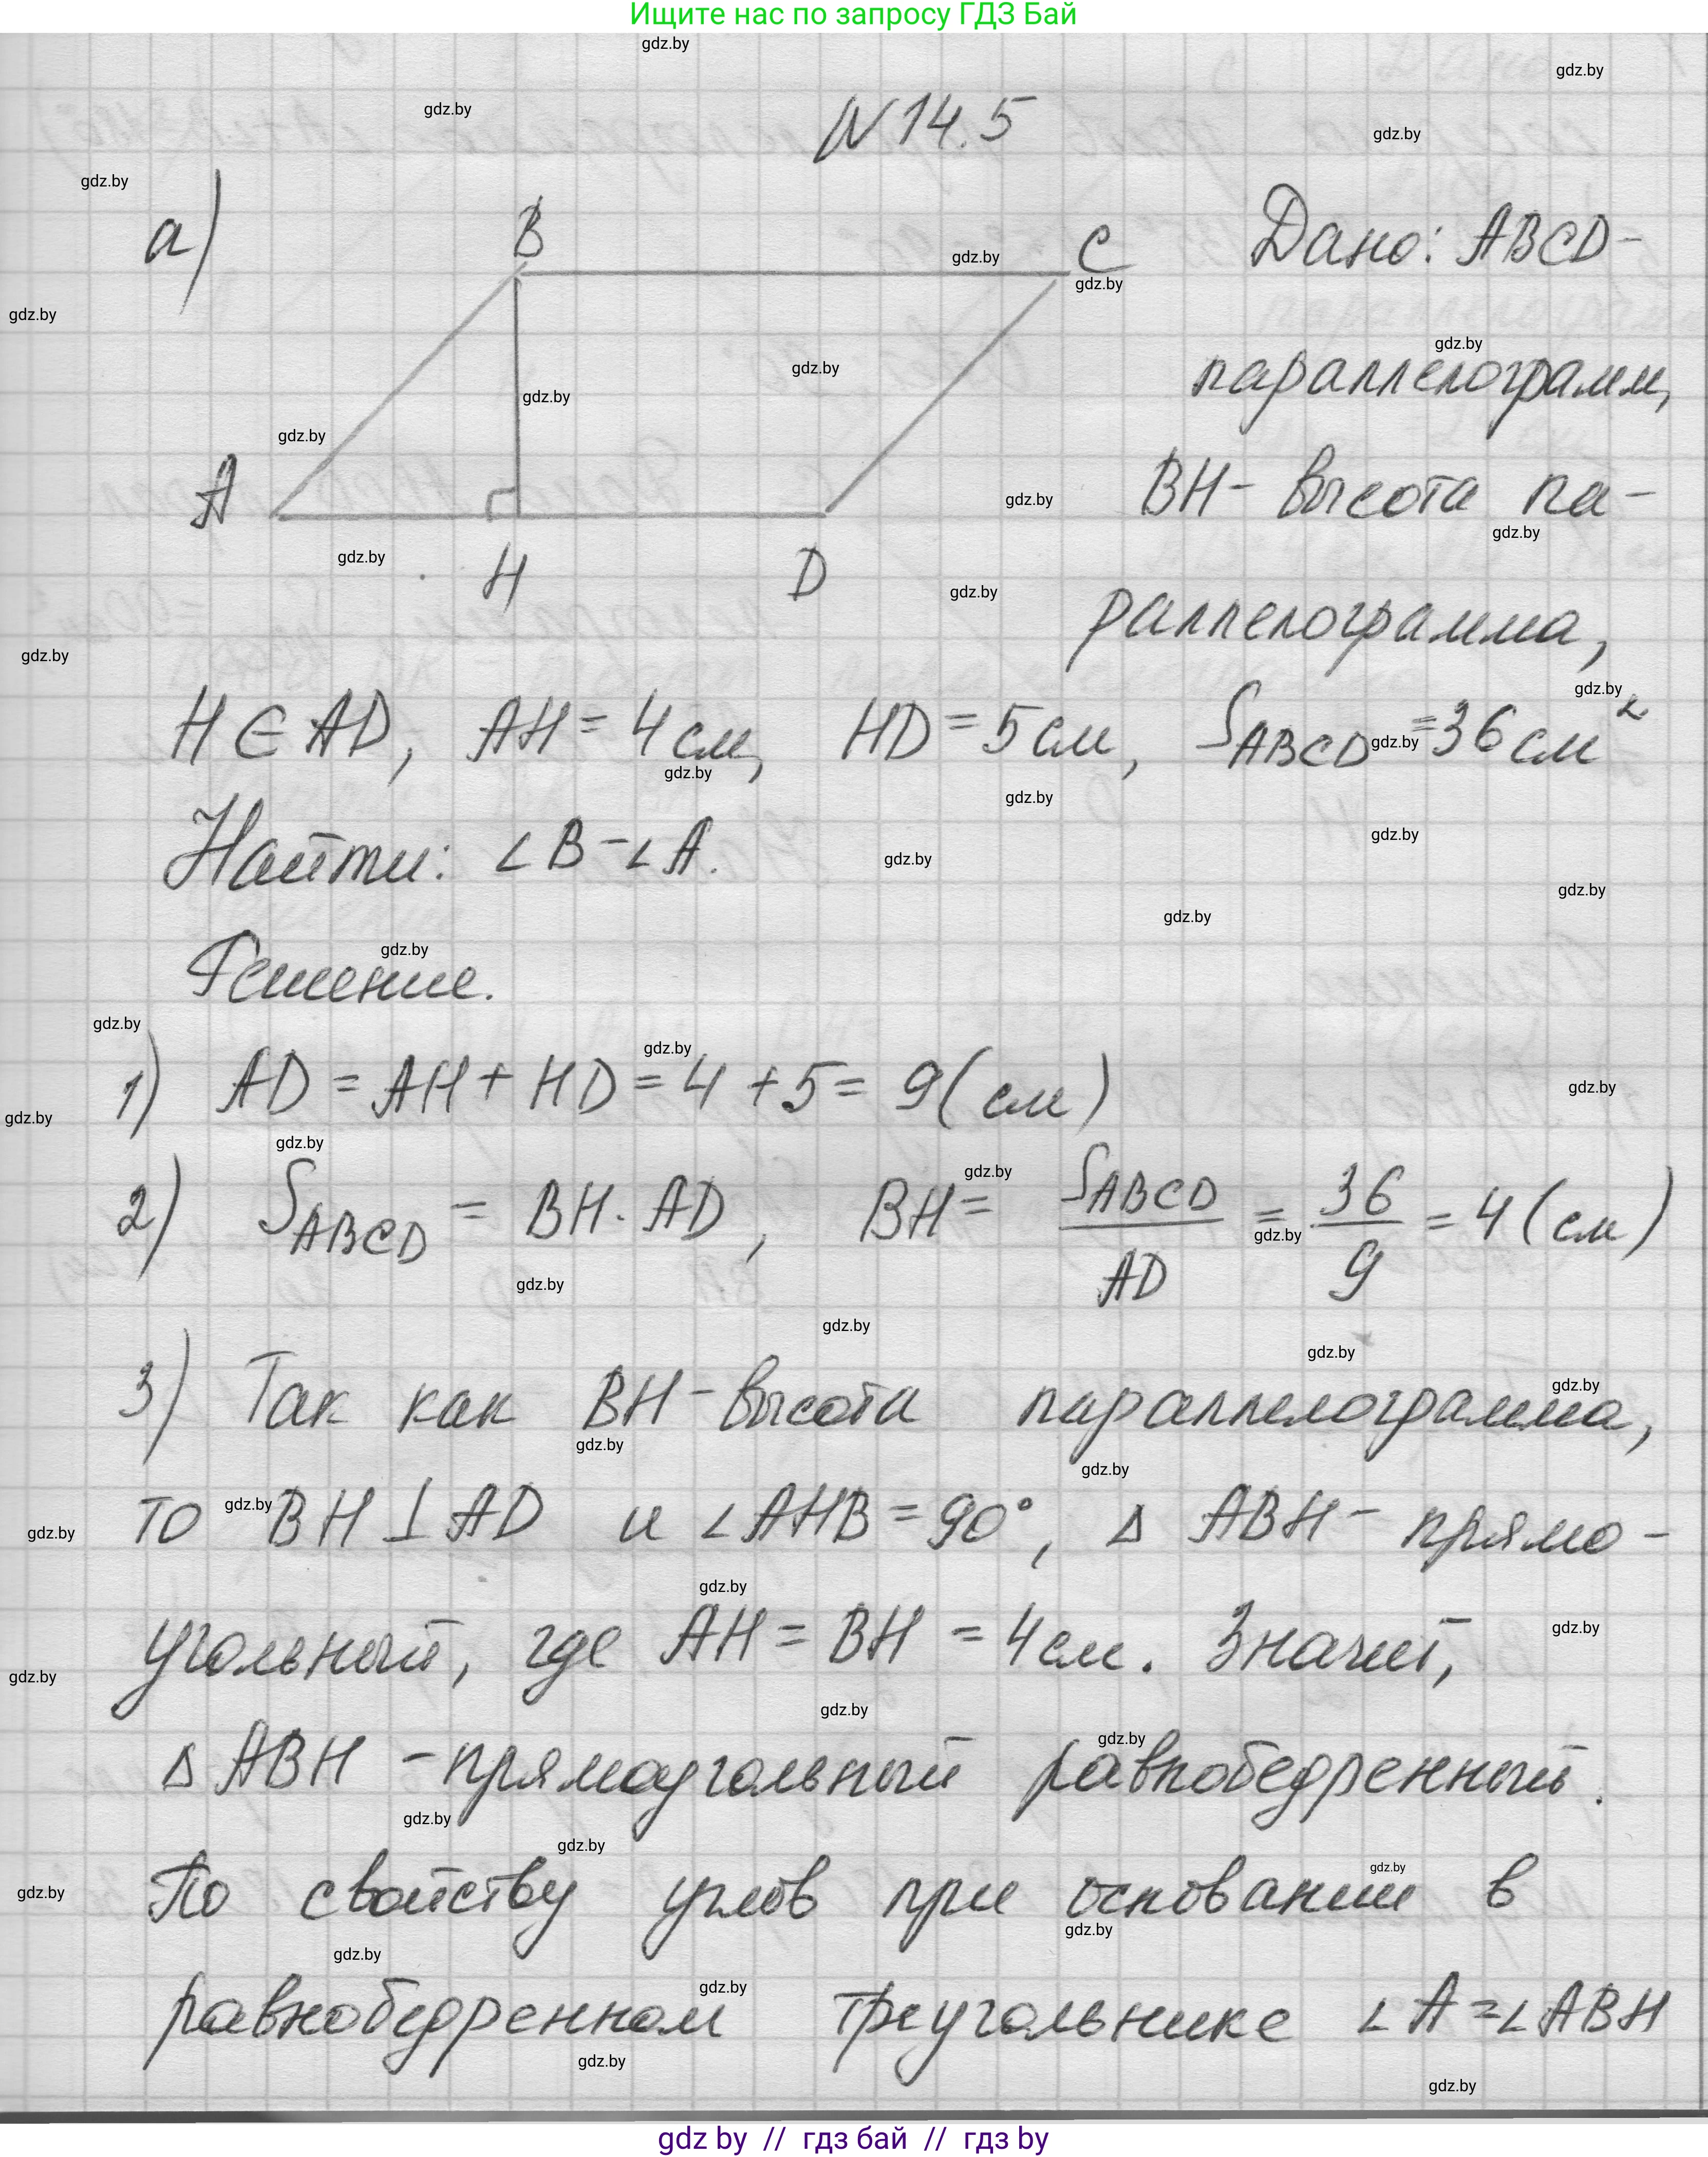 Ищите нас по запросу ГДЗ Бай
N 14.5
а)
B
C
A
H
D
Дано: ABCD-
параллелограмм,
BH- высота па-
раллелограмма,
H ∈ AD, AH = 4 см, HD = 5 см, S ABCD = 36 см²
Найти: ∠B - ∠A.
Решение.
1) AD = AH + HD = 4 + 5 = 9 (см)
2) S ABCD = BH · AD, BH = S ABCD / AD = 36 / 9 = 4 (см)
3) Так как BH - высота параллелограмма,
то BH ⊥ AD и ∠AHB = 90°, Δ ABH - прямо-
угольный, где AH = BH = 4 см. Значит,
Δ ABH - прямоугольный равнобедренный.
По свойству углов при основании в
равнобедренном треугольнике ∠A = ∠ABH
gdz by // гдз бай // гдз by